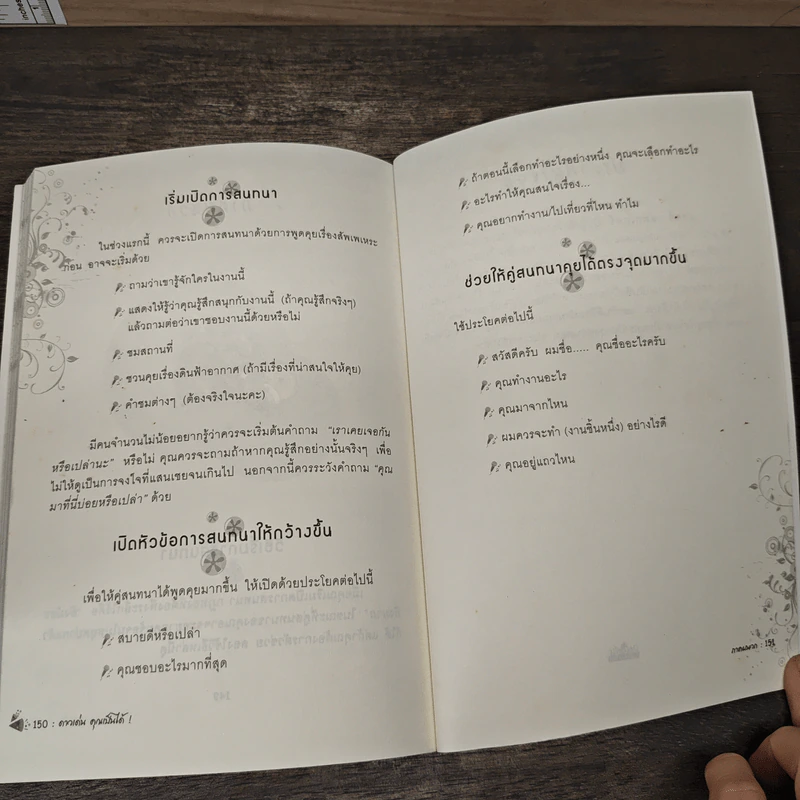 เริ่มเปิดการสนทนา
ในช่วงแรกนี้ ควรจะเปิดการสนทนาด้วยการพูดคุยเรื่องสัพเพเหระ
ก่อน อาจจะเริ่มด้วย
ถามว่าเขารู้จักใครในงานนี้
แสดงให้รู้ว่าคุณรู้สึกสนุกกับงานนี้ (ถ้าคุณรู้สึกจริงๆ)
แล้วถามต่อว่าเขาชอบงานนี้ด้วยหรือไม่
ชมสถานที่
ชวนคุยเรื่องดินฟ้าอากาศ (ถ้ามีเรื่องที่น่าสนใจให้คุย)
คำชมต่างๆ (ต้องจริงใจนะคะ)
มีคนจำนวนไม่น้อยอยากรู้ว่าควรจะเริ่มต้นคำถาม "เราเคยเจอกัน
หรือเปล่านะ" หรือไม่ คุณควรจะถามถ้าหากคุณรู้สึกอย่างนั้นจริงๆ เพื่อ
ไม่ให้ดูเป็นการจงใจที่แสนเชยจนเกินไป นอกจากนี้ควรระวังคำถาม "คุณ
มาที่นี่บ่อยหรือเปล่า" ด้วย
เปิดหัวข้อการสนทนาให้กว้างขึ้น
เพื่อให้คู่สนทนาได้พูดคุยมากขึ้น ให้เปิดด้วยประโยคต่อไปนี้
สบายดีหรือเปล่า
คุณชอบอะไรมากที่สุด
150 : ดาวเด่น คุณเป็นได้ !
ถ้าตอนนี้เลือกทำอะไรอย่างหนึ่ง คุณจะเลือกทำอะไร
อะไรทำให้คุณสนใจเรื่อง...
คุณอยากทำงาน/ไปเที่ยวที่ไหน ทำไม
ช่วยให้คู่สนทนาคุยได้ตรงจุดมากขึ้น
ใช้ประโยคต่อไปนี้
สวัสดีครับ ผมชื่อ..... คุณชื่ออะไรครับ
คุณทำงานอะไร
คุณมาจากไหน
ผมควรจะทำ (งานชิ้นหนึ่ง) อย่างไรดี
คุณอยู่แถวไหน
ภาคผนวก : 151